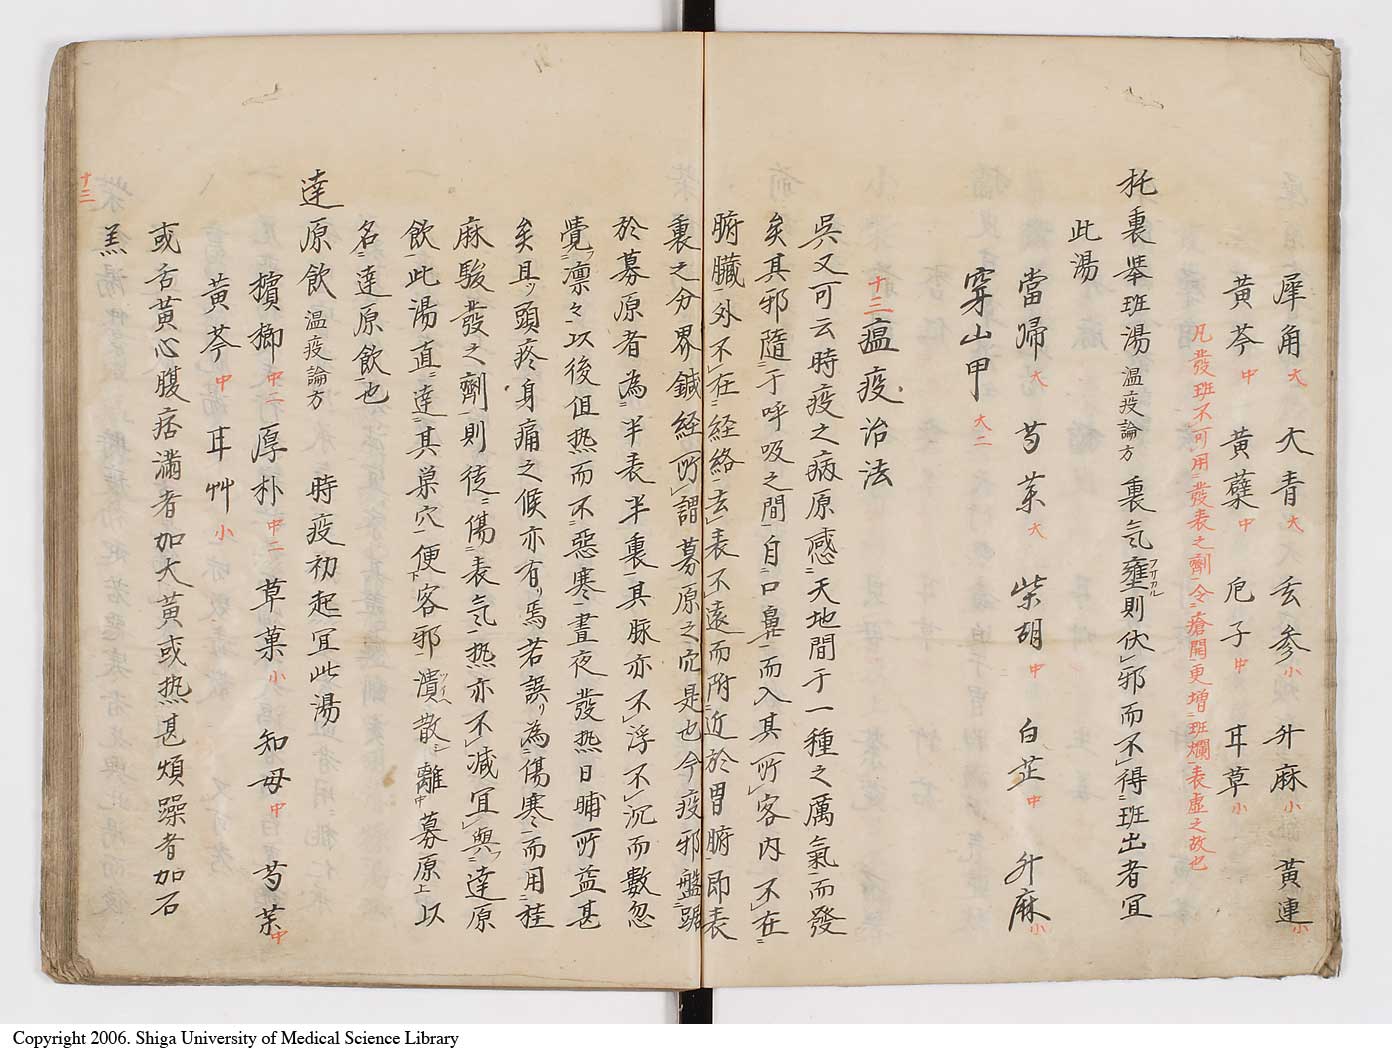 犀角大 大青大 玄参小 升麻小 黄連小
黄芩中 黄蘗中 巵子中 耳草小
凡發班不可用發表之劑令瘡開更増班爛表虚之故也
托裏挙班湯 温疫論方 裏気壅フサカル則伏邪而不得班出者宜
此湯
當帰大 芍薬大 柴胡中 白芷中 升麻小
穿山甲大二
十三瘟疫治法
呉又可云時疫之病原感天地間于一種之厲氣而發
矣其邪隨于呼吸之間自口鼻而入其所客内不在
腑臓外不在経絡去表不遠而附近於胃腑即表
裏之分界鍼経所謂募原之穴是也今疫邪盤踞
於募原者為半表半裏其脉亦不浮不沉而數忽
覺凛々以後但热而不惡寒晝夜發热日晡所益甚
矣且頭疼身痛之候亦有焉若誤為傷寒而用桂
麻駿發之劑則徒傷表気热亦不減冝與達原
飲此湯直達其巣穴便下客邪潰ツイヘ散離中募原上以
名達原飲也
達原飲 温疫論方 時疫初起宜此湯
擯榔中二 厚朴中二 草菓小 知母中 芍薬中
黄芩中 耳艸小
或舌黄心腹痞満者加大黄或热甚煩躁者加石
羔湯
十三
Copyright 2006. Shiga University of Medical Science Library